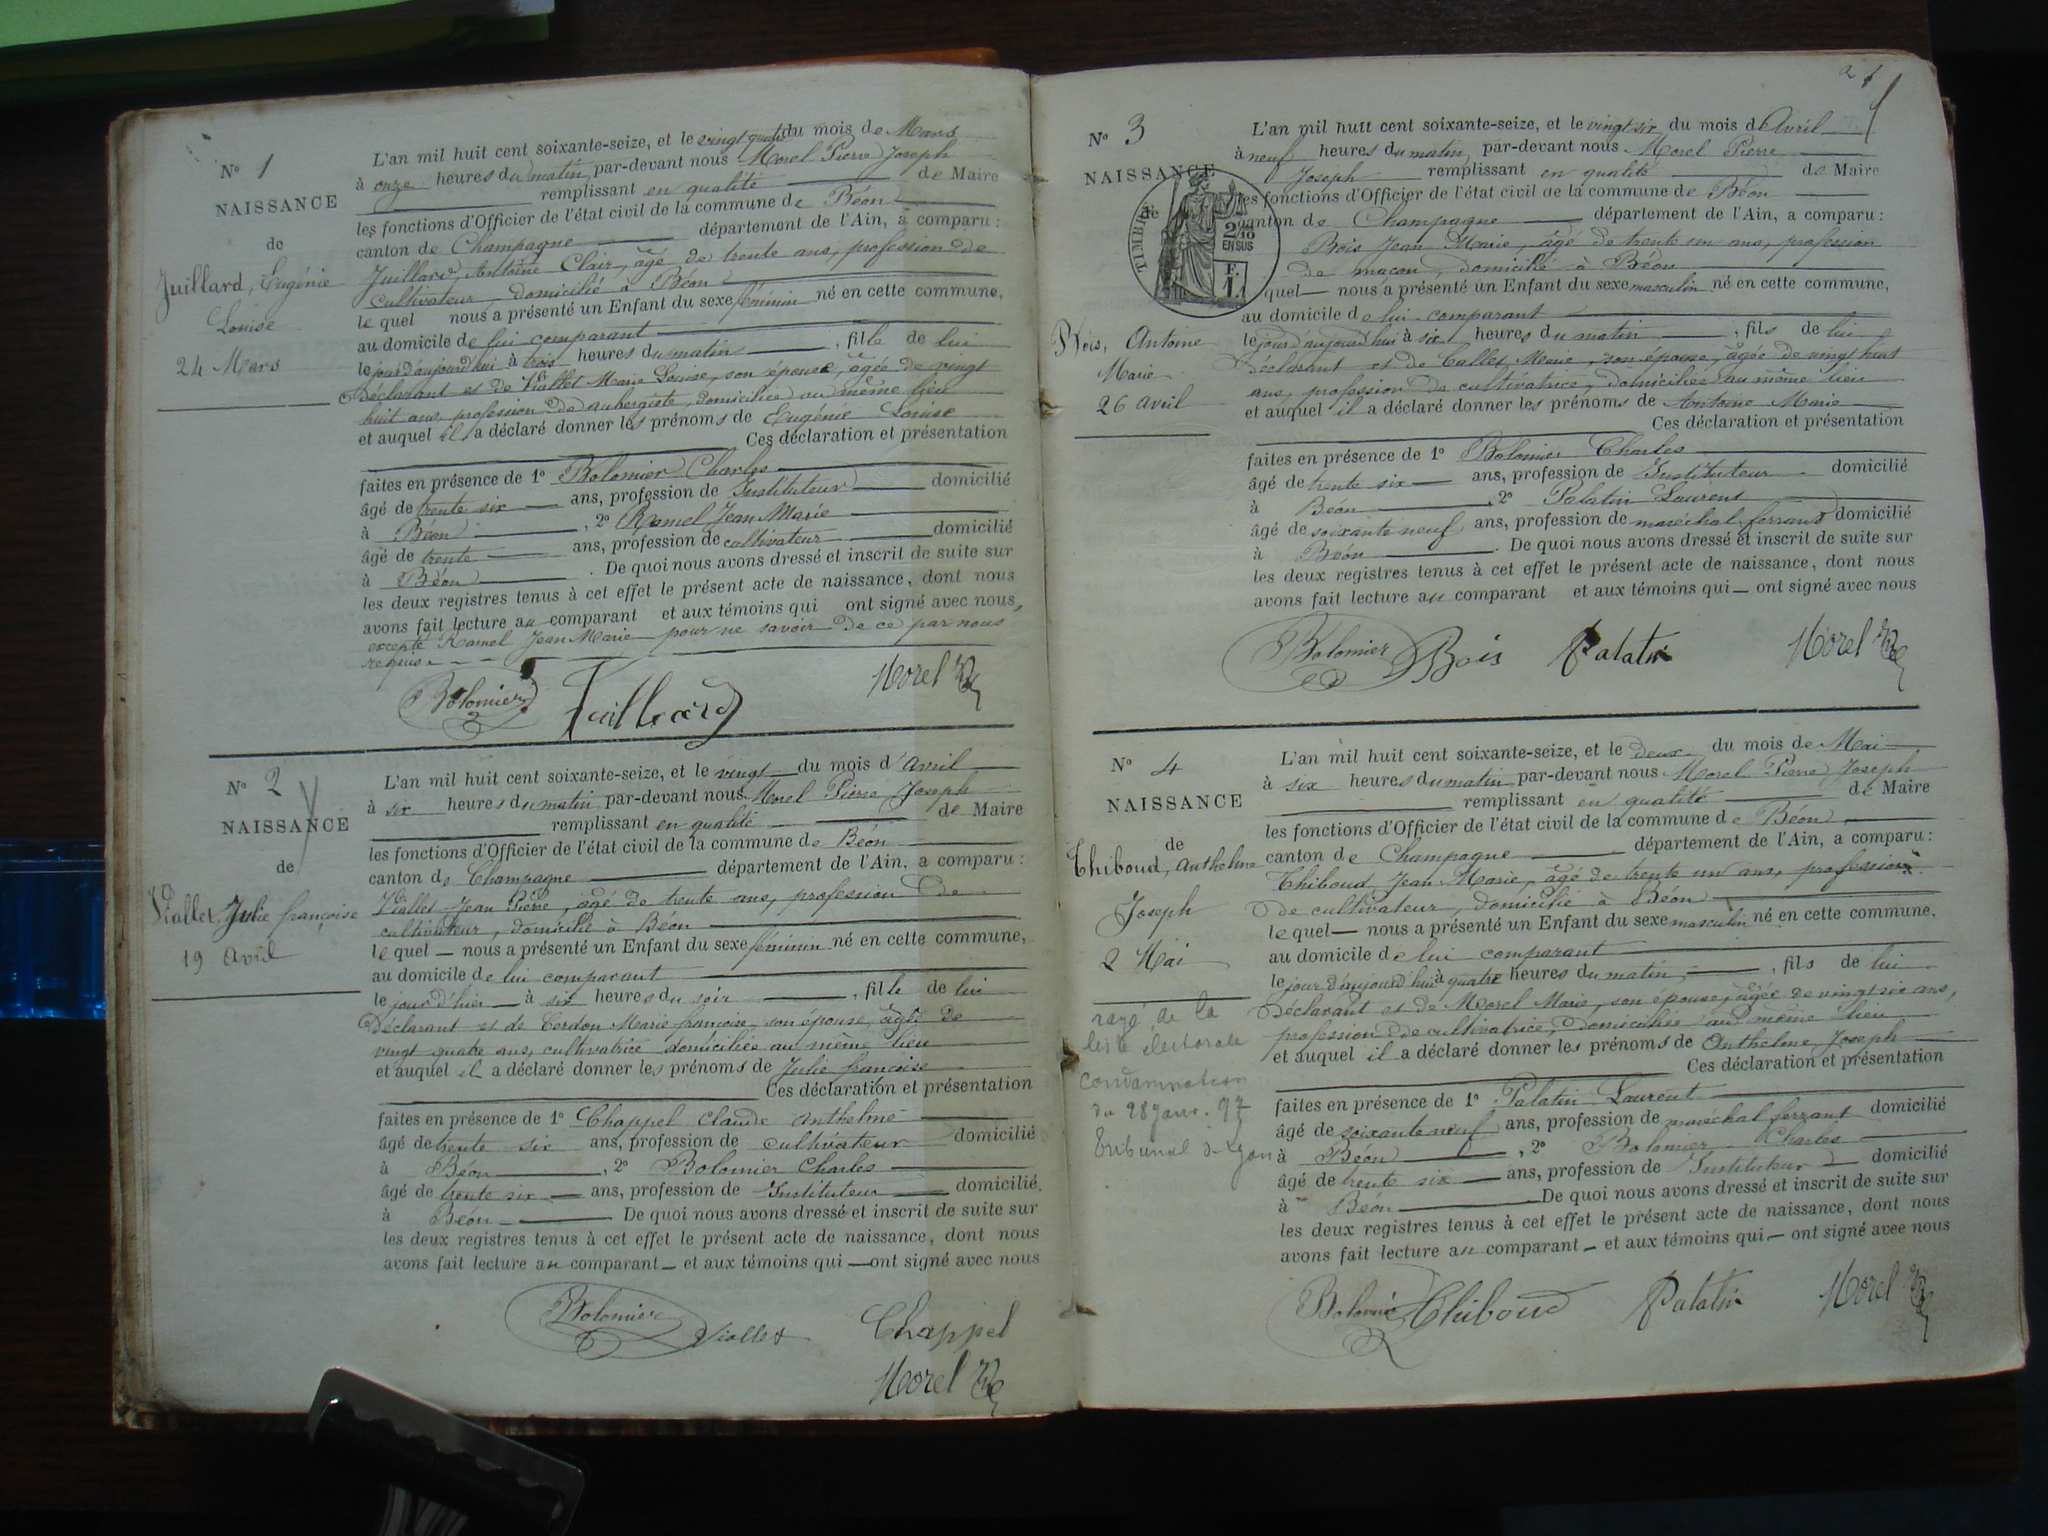 N° 1
NAISSANCE
de
Juillard, Eugénie
Louise
24 Mars
L'an mil huit cent soixante-seize, et le vingt quatre du mois de Mars
à onze heures du matin, par-devant nous Morel Pierre Joseph
remplissant en qualité de Maire
les fonctions d'Officier de l'état civil de la commune de Béon
canton de Champagne département de l'Ain, a comparu :
Juillard Antoine Clair, âgé de trente ans, profession de
cultivateur, domicilié à Béon
le quel nous a présenté un Enfant du sexe féminin né en cette commune,
au domicile de lui comparant
le jour d'aujourd'hui à trois heures du matin, fille de lui
Déclarant et de Viallet Marie Louise, son épouse, âgée de vingt
huit ans, profession de aubergiste, domiciliée au même lieu
et auquel il a déclaré donner les prénoms de Eugénie Louise
Ces déclaration et présentation
faites en présence de 1° Bolomier Charles
âgé de trente six ans, profession de Instituteur domicilié
à Béon, 2° Ramel Jean Marie
âgé de trente ans, profession de cultivateur domicilié
à Béon. De quoi nous avons dressé et inscrit de suite sur
les deux registres tenus à cet effet le présent acte de naissance, dont nous
avons fait lecture au comparant et aux témoins qui ont signé avec nous,
excepté Ramel Jean Marie pour ne savoir de ce par nous
requis.
Bolomier Juillard Morel
N° 2
NAISSANCE
de
Viallet Julie françoise
19 Avril
L'an mil huit cent soixante-seize, et le vingt du mois d'Avril
à six heures du matin, par-devant nous Morel Pierre Joseph
remplissant en qualité de Maire
les fonctions d'Officier de l'état civil de la commune de Béon
canton de Champagne département de l'Ain, a comparu :
Viallet Jean Pierre, âgé de trente ans, profession de
cultivateur, domicilié à Béon
le quel nous a présenté un Enfant du sexe féminin né en cette commune,
au domicile de lui comparant
le jour d'hier à six heures du soir, fille de lui
Déclarant et de Cerdon Marie françoise, son épouse, âgée de
vingt quatre ans, cultivatrice domiciliée au même lieu
et auquel il a déclaré donner les prénoms de Julie françoise
Ces déclaration et présentation
faites en présence de 1° Chappel Claude Anthelme
âgé de trente six ans, profession de cultivateur domicilié
à Béon, 2° Bolomier Charles
âgé de trente six ans, profession de Instituteur domicilié
à Béon. De quoi nous avons dressé et inscrit de suite sur
les deux registres tenus à cet effet le présent acte de naissance, dont nous
avons fait lecture au comparant et aux témoins qui ont signé avec nous
Bolomier Viallet Chappel
Morel
N° 3
NAISSANCE
de
TIMBRE
2/10
EN SUS
F.
1
Bois, Antoine
Marie
26 Avril
L'an mil huit cent soixante-seize, et le vingt six du mois d'Avril
à neuf heures du matin, par-devant nous Morel Pierre
Joseph remplissant en qualité de Maire
les fonctions d'Officier de l'état civil de la commune de Béon
canton de Champagne département de l'Ain, a comparu :
Bois Jean Marie, âgé de trente un ans, profession
de maçon, domicilié à Béon
le quel nous a présenté un Enfant du sexe masculin né en cette commune,
au domicile de lui comparant
le jour d'aujourd'hui à six heures du matin, fils de lui
Déclarant et de Callet Marie, son épouse, âgée de vingt huit
ans, profession de cultivatrice, domiciliée au même lieu
et auquel il a déclaré donner les prénoms de Antoine Marie
Ces déclaration et présentation
faites en présence de 1° Bolomier Charles
âgé de trente six ans, profession de Instituteur domicilié
à Béon, 2° Palatin Laurent
âgé de soixante neuf ans, profession de maréchal ferrand domicilié
à Béon. De quoi nous avons dressé et inscrit de suite sur
les deux registres tenus à cet effet le présent acte de naissance, dont nous
avons fait lecture au comparant et aux témoins qui ont signé avec nous
Bolomier Bois Palatin Morel
N° 4
NAISSANCE
de
Thiboud, Anthelme
Joseph
2 Mai
rayé de la
liste électorale
condamnation
du 28 janv. 97
Tribunal de Lyon
L'an mil huit cent soixante-seize, et le deux du mois de Mai
à six heures du matin, par-devant nous Morel Pierre Joseph
remplissant en qualité de Maire
les fonctions d'Officier de l'état civil de la commune de Béon
canton de Champagne département de l'Ain, a comparu :
Thiboud Jean Marie, âgé de trente un ans, profession
de cultivateur, domicilié à Béon
le quel nous a présenté un Enfant du sexe masculin né en cette commune,
au domicile de lui comparant
le jour d'aujourd'hui à quatre heures du matin, fils de lui
Déclarant et de Morel Marie, son épouse, âgée de vingt six ans,
profession de cultivatrice, domiciliée au même lieu
et auquel il a déclaré donner les prénoms de Anthelme Joseph
Ces déclaration et présentation
faites en présence de 1° Palatin Laurent
âgé de soixante neuf ans, profession de maréchal ferrant domicilié
à Béon, 2° Bolomier Charles
âgé de trente six ans, profession de Instituteur domicilié
à Béon De quoi nous avons dressé et inscrit de suite sur
les deux registres tenus à cet effet le présent acte de naissance, dont nous
avons fait lecture au comparant et aux témoins qui ont signé avec nous
Bolomier Thiboud Palatin Morel